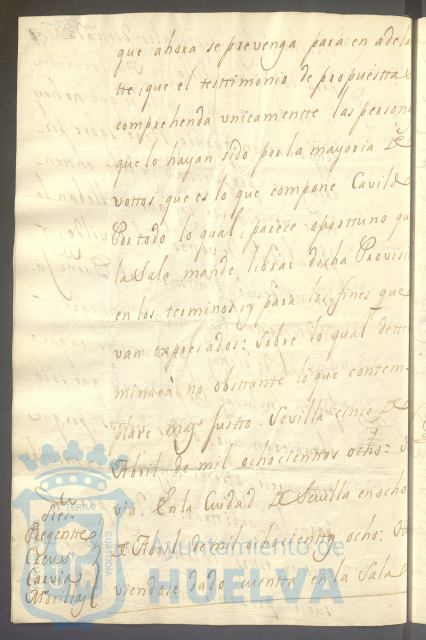 que ahora se prevenga para en adela
tte, que el testtimonio de propuestta
comprehenda unicamentte las persona
que lo hayan sido por la mayoria de
vottos, que es lo que compone Cavildo
Por todo lo qual, parece oporttuno qu
la Sala mande librar dicha Provisi
en los terminos, y para los fines que
van expresados: Sobre lo qual detter
minará no obsttante lo que conttem
plare mas justto. Sevilla cinco de
Abril de mil ochocienttos ocho:
via. En la Ciudad de Sevilla en ocho
Sres.
Regentte
de Abril de mil ochocienttos ocho:
viendose dado cuentta en la Sala
Ayuntamiento de
HUELVA